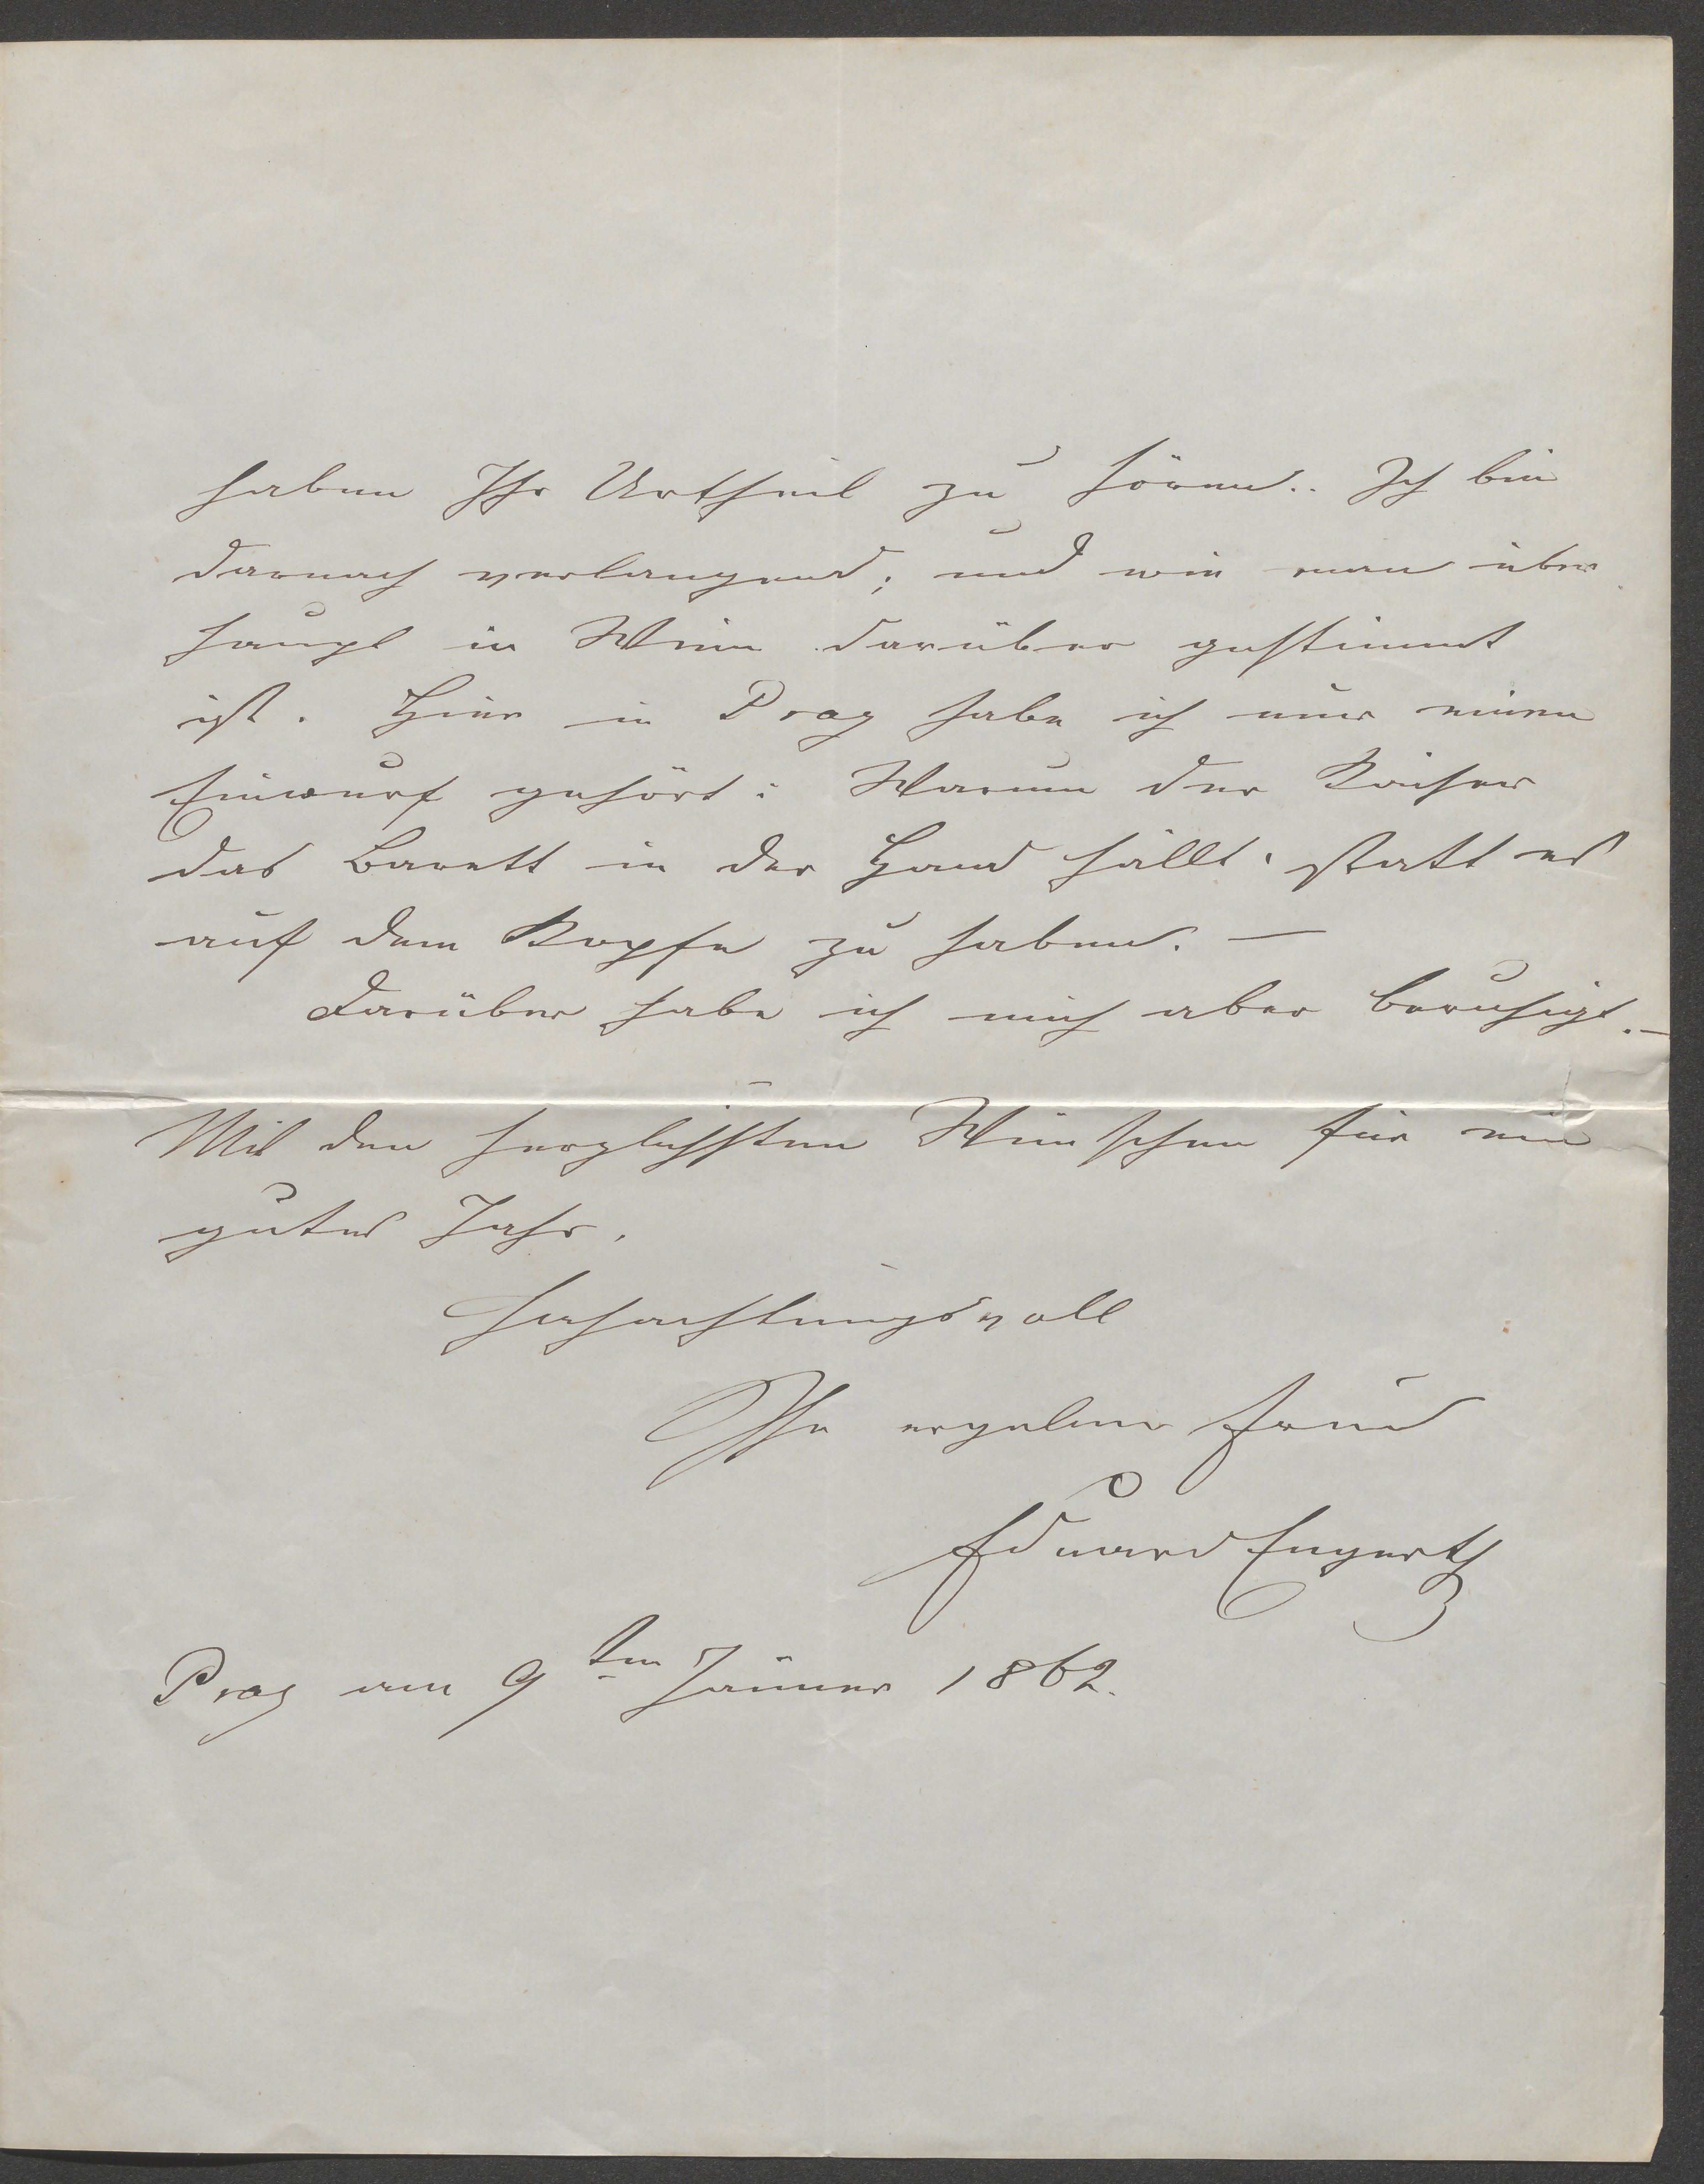 haben Ihr Urtheil zu hören.. Ich bin
darnach verlangend; und wie man über
haupt in Wien darüber gestimmt
ist. Hier in Prag habe ich nur einen
Einwurf gehört: Warum der Kaiser
das Barett in der Hand hällt, statt es
auf dem Kopfe zu haben. —
Darüber habe ich mich aber beruhigt. —
Mit den herzlichsten Wünschen für ein
gutes Jahr.
Hochachtungsvoll
Ihr ergebener Freund
Eduard Engerth
Prag am 9ten Jänner 1862.